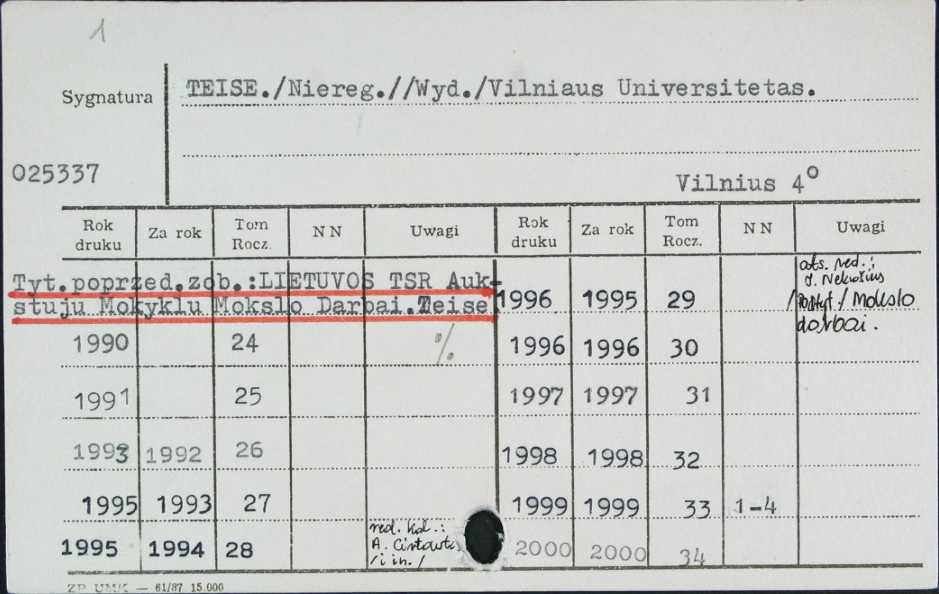 1
Sygnatura
TEISE./Niereg.//Wyd./Vilniaus Universitetas.
025337
Vilnius 4°
Rok druku Za rok Tom Rocz. NN Uwagi Rok druku Za rok Tom Rocz. NN Uwagi
Tyt.poprzed.zob.:LIETUVOS TSR Auk-
stuju Mokyklu Mokslo Darbai.Teise
1990 24 %
1991 25
1993 1992 26
1995 1993 27
1995 1994 28 red. kol.:
A.
/i in./
1996 1995 29 ats. red.:
J. Nekrošius
/Podtyt./ Mokslo
darbai.
1996 1996 30
1997 1997 31
1998 1998 32
1999 1999 33 1-4
2000 2000 34
ZP UMK — 61/87 15.000